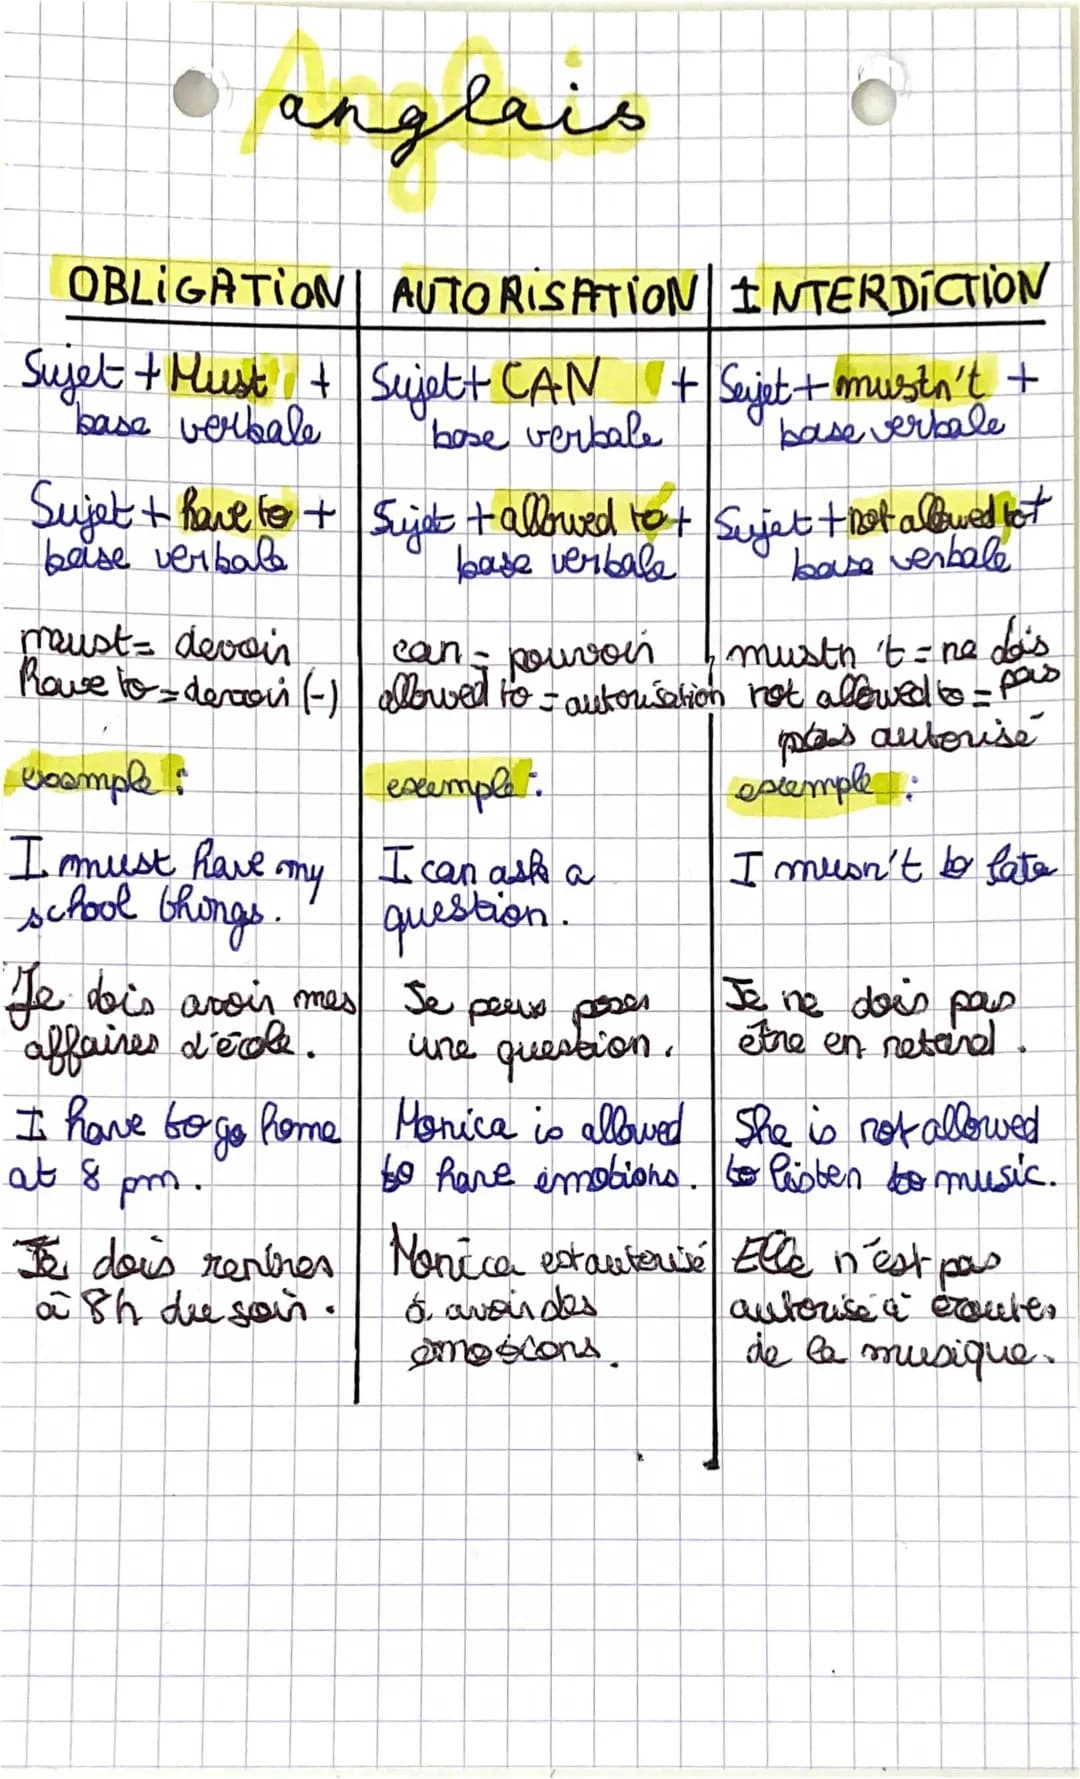 Anglais
anglais
OBLIGATION
Sujet + Must +
base verbale
Sujet + have to +
base verbale
must = devoir
Have to = devoir (-)
exemple :
I must have my
school things.
Je dois avoir mes
affaires d'école.
I have to go home
at 8 pm.
Je dois rentrer
à 8h du soir.
AUTORISATION
Sujet + CAN +
base verbale
Sujet + allowed to +
base verbale
can = pouvoir
allowed to = autorisation
exemple :
I can ask a
question.
Je peux poser
une question.
Monica is allowed
to have emotions.
Monica est autorisé
à avoir des
émotions.
INTERDICTION
Sujet + mustn't +
base verbale
Sujet + not allowed to +
base verbale
mustn't = ne dois
pas
not allowed to =
pas autorisé
exemple :
I musn't be late
Je ne dois pas
être en retard.
She is not allowed
to listen to music.
Elle n'est pas
autorisé à écouter
de la musique.